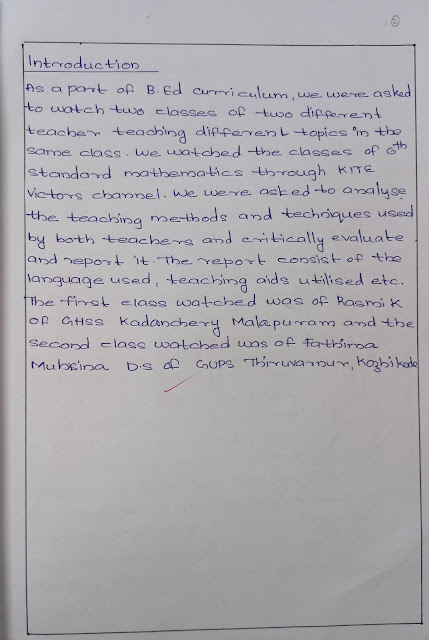 Introduction
As a part of B.Ed curriculum, we were asked
to watch two classes of two different
teacher teaching different topics in the
same class. We watched the classes of 6th
standard mathematics through KITE
Victors channel. We were asked to analyse
the teaching methods and techniques used
by both teachers and critically evaluate
and report it. The report consist of the
language used, teaching aids utilised etc.
The first class watched was of Rasmi K
of GHSS Kadanchery Malapuram and the
second class watched was of Fathima
Mubsina D.S of GUPS Thiruvannur, Kozhikode